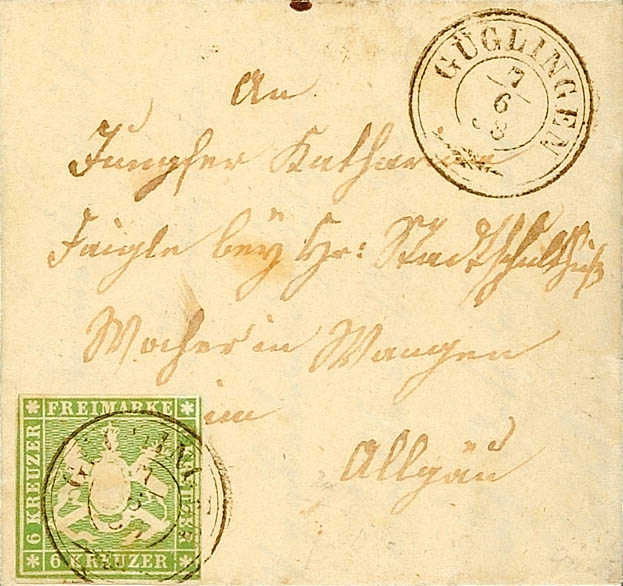 GÜGLINGEN
7
6
An
Jungfer Katharine
Faigle bey Hr: Stadtschultheiß
Wocher in Wangen
im
Allgäu
FREIMARKE
6 KREUZER
6 KREUZER